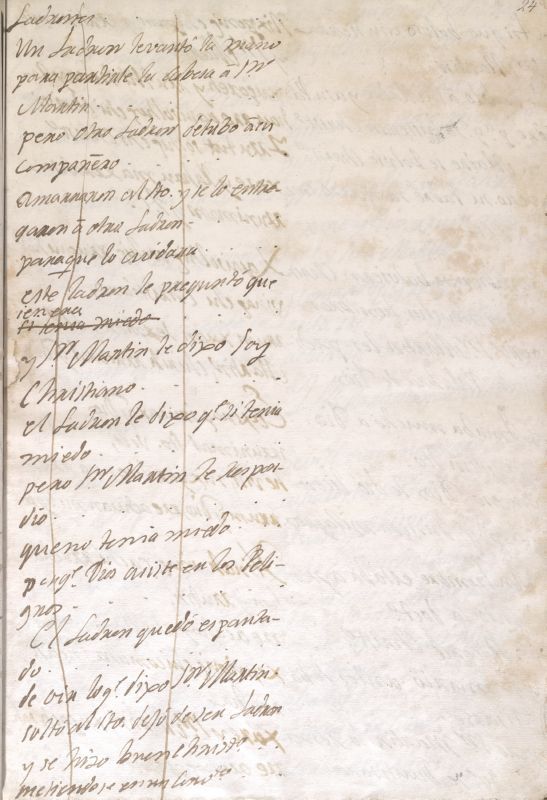 24
Ladrones
Un Ladron levantó la mano
para partirle la cabeza à Sn.
Martin
pero otro Ladron detubo à su
Compañero.
Amarraron al Sto. y se lo entre-
garon a otro Ladron.
paraque lo cuidara
este ladron le preguntó que
ien era
si tenia miedo
y Sn. Martin le dixo Soy
Christiano.
el Ladron le dixo q.e si tenia
miedo.
pero Sn. Martin le respon-
dio.
que no tenia miedo.
porq.e Dios asiste en los Peli-
gros.
El Ladron quedó espanta-
do
de oir lo q.e dixo Sn. Martin
soltó al Sto. dejó de ser Ladron
y se hizo buen Christo.
metiendose en un Conv.to